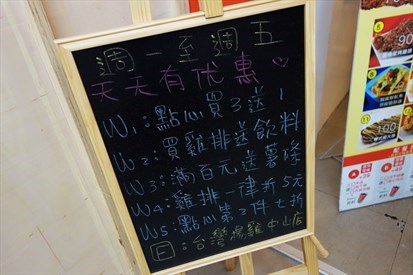 週一至週五
天天有优惠♡
W1:點心買3送1
W2:買雞排送飲料
W3:滿百元送薯條
W4:雞排一律折5元
W5:點心第2件七折
F:台灣鳴雞中山店
5
90
6
80
11
100